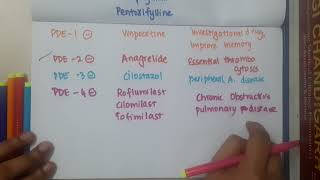 Pentoxifylline
PDE-1 ⊖ Vinpocetine Investigational drug,
Improve memory
PDE-2 ⊖ Anagrelide Essential thrombo
cytosis
PDE-3 ⊖ Cilostazol peripheral A. disease
PDE-4 ⊖ Roflumilast Chronic Obstractive
Cilomilast pulmonary disease
Tofimilast